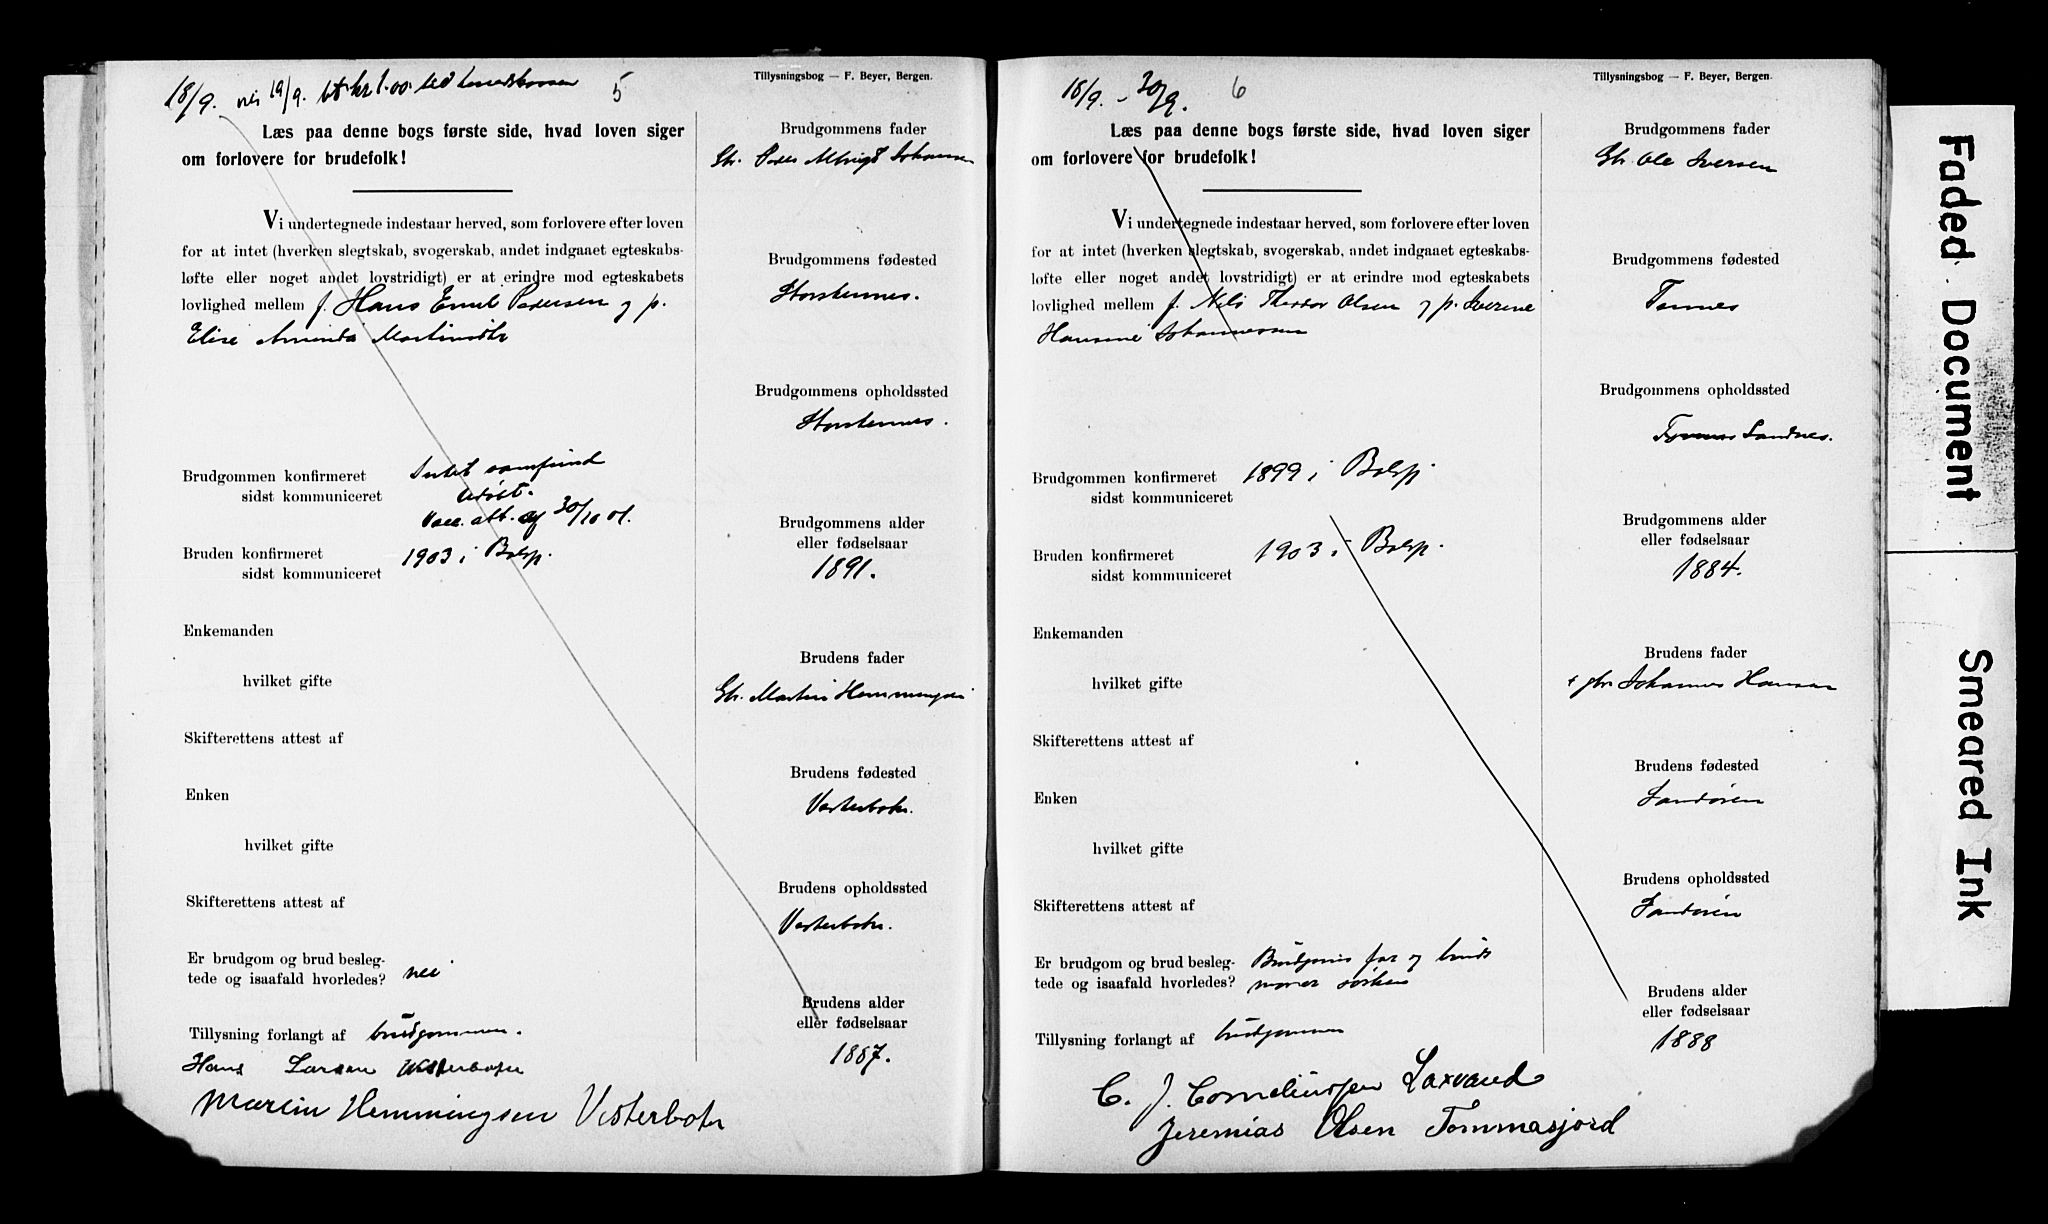 18/9. vis 19/9. bt. kr 1.00. til
5
Tillysningsbog — F. Beyer, Bergen.
Læs paa denne bogs første side, hvad loven siger
om forlovere for brudefolk!
Vi undertegnede indestaar herved, som forlovere efter loven
for at intet (hverken slegtskab, svogerskab, andet indgaaet egteskabs-
løfte eller noget andet lovstridigt) er at erindre mod egteskabets
lovlighed mellem f. Hans Emil Pedersen og p.
Elise Aminda Martinsdtr
Brudgommen konfirmeret
sidst kommuniceret
Intet samfund
Udöbt.
Vacc. att. af 30/10 01.
Bruden konfirmeret 1903 i Balsfj.
sidst kommuniceret
Enkemanden
hvilket gifte
Skifterettens attest af
Enken
hvilket gifte
Skifterettens attest af
Er brudgom og brud besleg-
tede og isaafald hvorledes? nei
Tillysning forlangt af brudgommen.
Hans Larsen Vesterbotn
Martin Hemmingsen Vesterbotn
Brudgommens fader
Gbr. Peder Albrigt Johansen
Brudgommens fødested
Storstennes.
Brudgommens opholdssted
Storstennes.
Brudgommens alder
eller fødselsaar
1891.
Brudens fader
Gbr. Martin Hemmingsen
Brudens fødested
Vesterbotn.
Brudens opholdssted
Vesterbotn.
Brudens alder
eller fødselsaar
1887.
18/9. - 30/9.
6
Tillysningsbog — F. Beyer, Bergen.
Læs paa denne bogs første side, hvad loven siger
om forlovere for brudefolk!
Vi undertegnede indestaar herved, som forlovere efter loven
for at intet (hverken slegtskab, svogerskab, andet indgaaet egteskabs-
løfte eller noget andet lovstridigt) er at erindre mod egteskabets
lovlighed mellem f. Nils Theodor Olsen og p. Iverine
Hansine Johannessen
Brudgommen konfirmeret 1899 i Balsfj.
sidst kommuniceret
Bruden konfirmeret 1903 i Balsfj.
sidst kommuniceret
Enkemanden
hvilket gifte
Skifterettens attest af
Enken
hvilket gifte
Skifterettens attest af
Er brudgom og brud besleg- Brudgoms far og bruds
tede og isaafald hvorledes? morer söskен
Tillysning forlangt af brudgommen
C. J. Corneliussen Laxvand
Jeremias Olsen Tommasjord
Brudgommens fader
Gbr Ole Iversen
Brudgommens fødested
Tomnes
Brudgommens opholdssted
Sandnes.
Brudgommens alder
eller fødselsaar
1884.
Brudens fader
† gbr. Johannes Hansen
Brudens fødested
Sandören
Brudens opholdssted
Sandören
Brudens alder
eller fødselsaar
1888
Faded Document
Smeared Ink